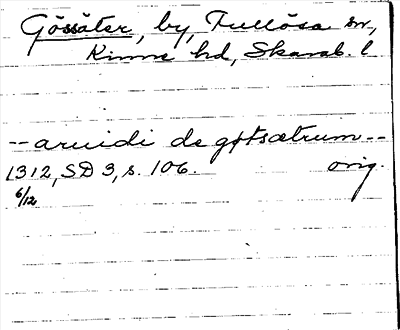 Gössäter, by, Fullösa sn,
Kinne hd, Skarab. l
-- aruidi de gøtsætrum --
1312, SD 3, s. 106. orig.
6/12